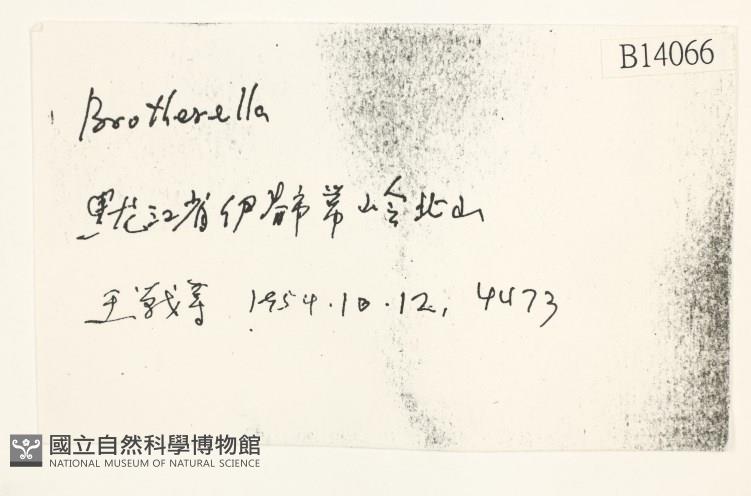 B14066
Brotherella
黑龙江省伊春市带岭北山
王战等 1954.10.12, 4473
國立自然科學博物館
NATIONAL MUSEUM OF NATURAL SCIENCE